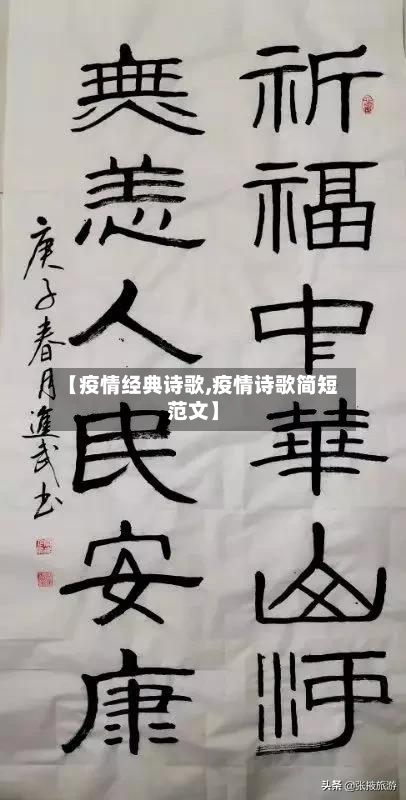 祈福中華山河
無恙人民安康
庚子春月進武书
【疫情经典诗歌,疫情诗歌简短
范文】
头条 @张掖旅游